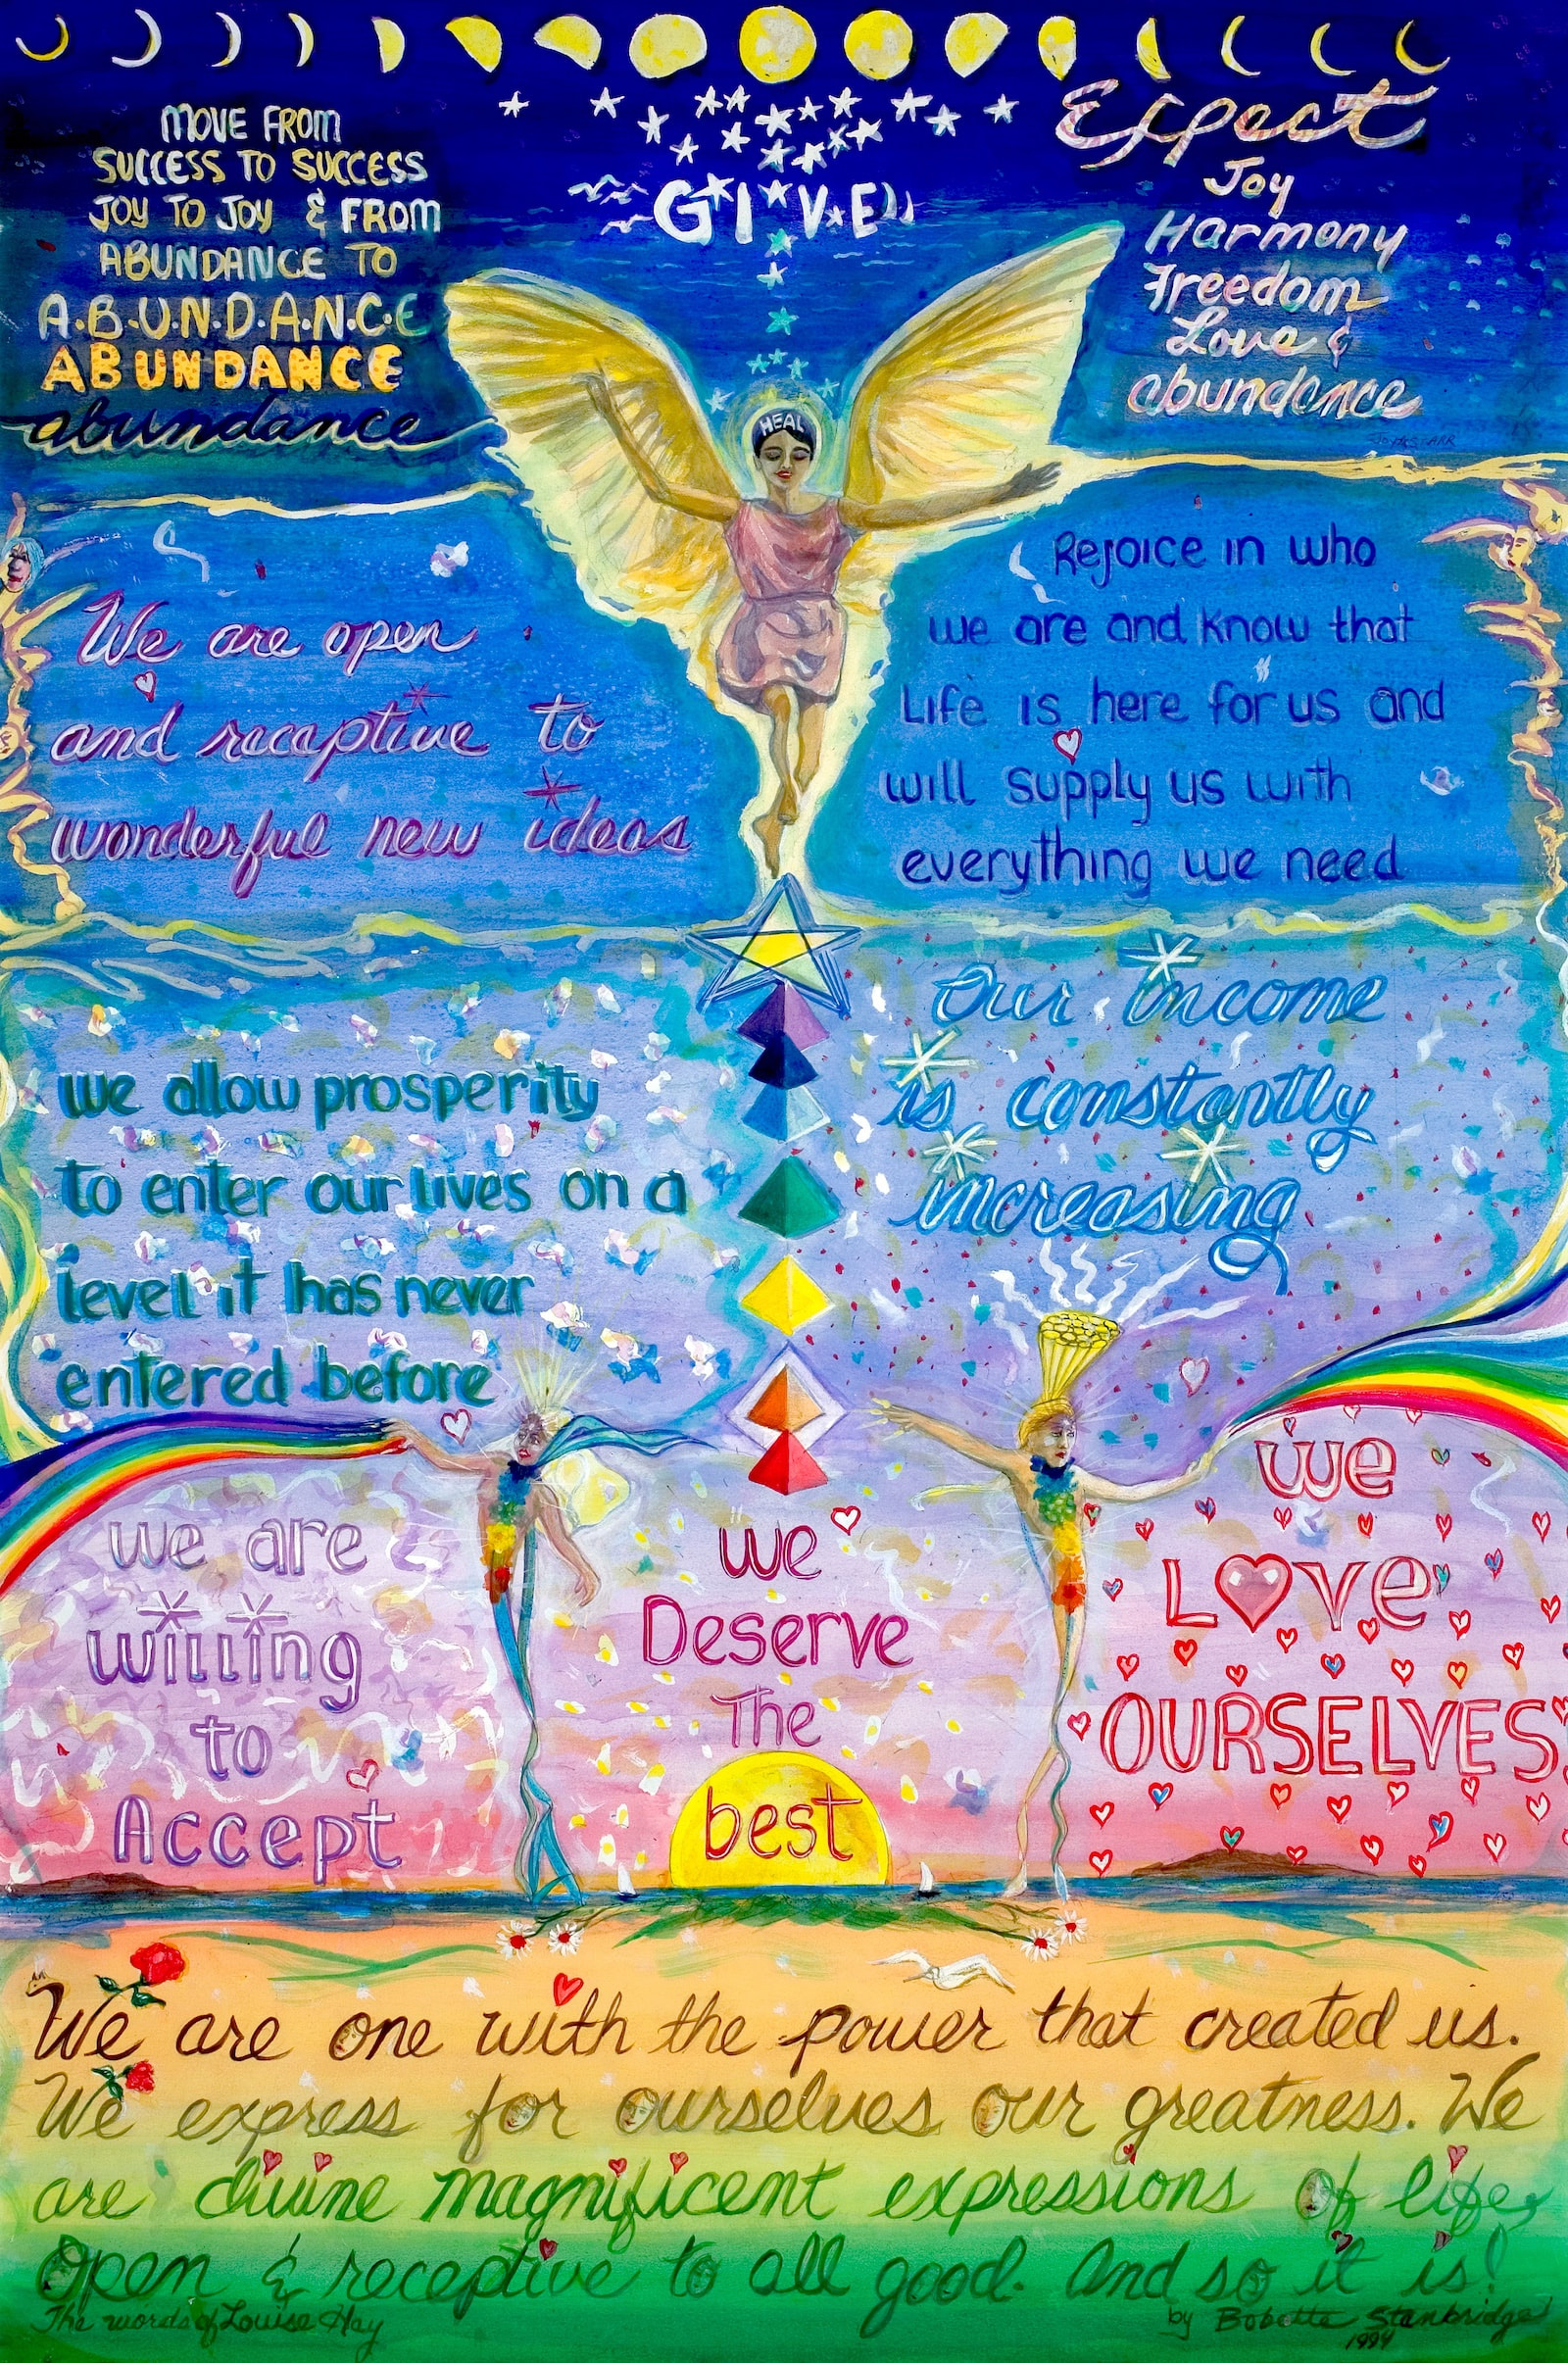 MOVE FROM
SUCCESS TO SUCCESS
JOY TO JOY & FROM
ABUNDANCE TO
A.B.U.N.D.A.N.C.E
ABUNDANCE
abundance
GIVE
Expect
Joy
Harmony
Freedom
Love &
abundance
HEAL
We are open
and receptive to
wonderful new ideas
Rejoice in who
we are and know that
Life is here for us and
will supply us with
everything we need
we allow prosperity
to enter our lives on a
level it has never
entered before
Our income
is constantly
increasing
we are
willing
to
Accept
we
Deserve
The
best
we
LOVE
OURSELVES
We are one with the power that created us.
We express for ourselves our greatness. We
are divine magnificent expressions of life,
Open & receptive to all good. And so it is!
The words of Louise Hay
by Bobette Stanbridge
1994